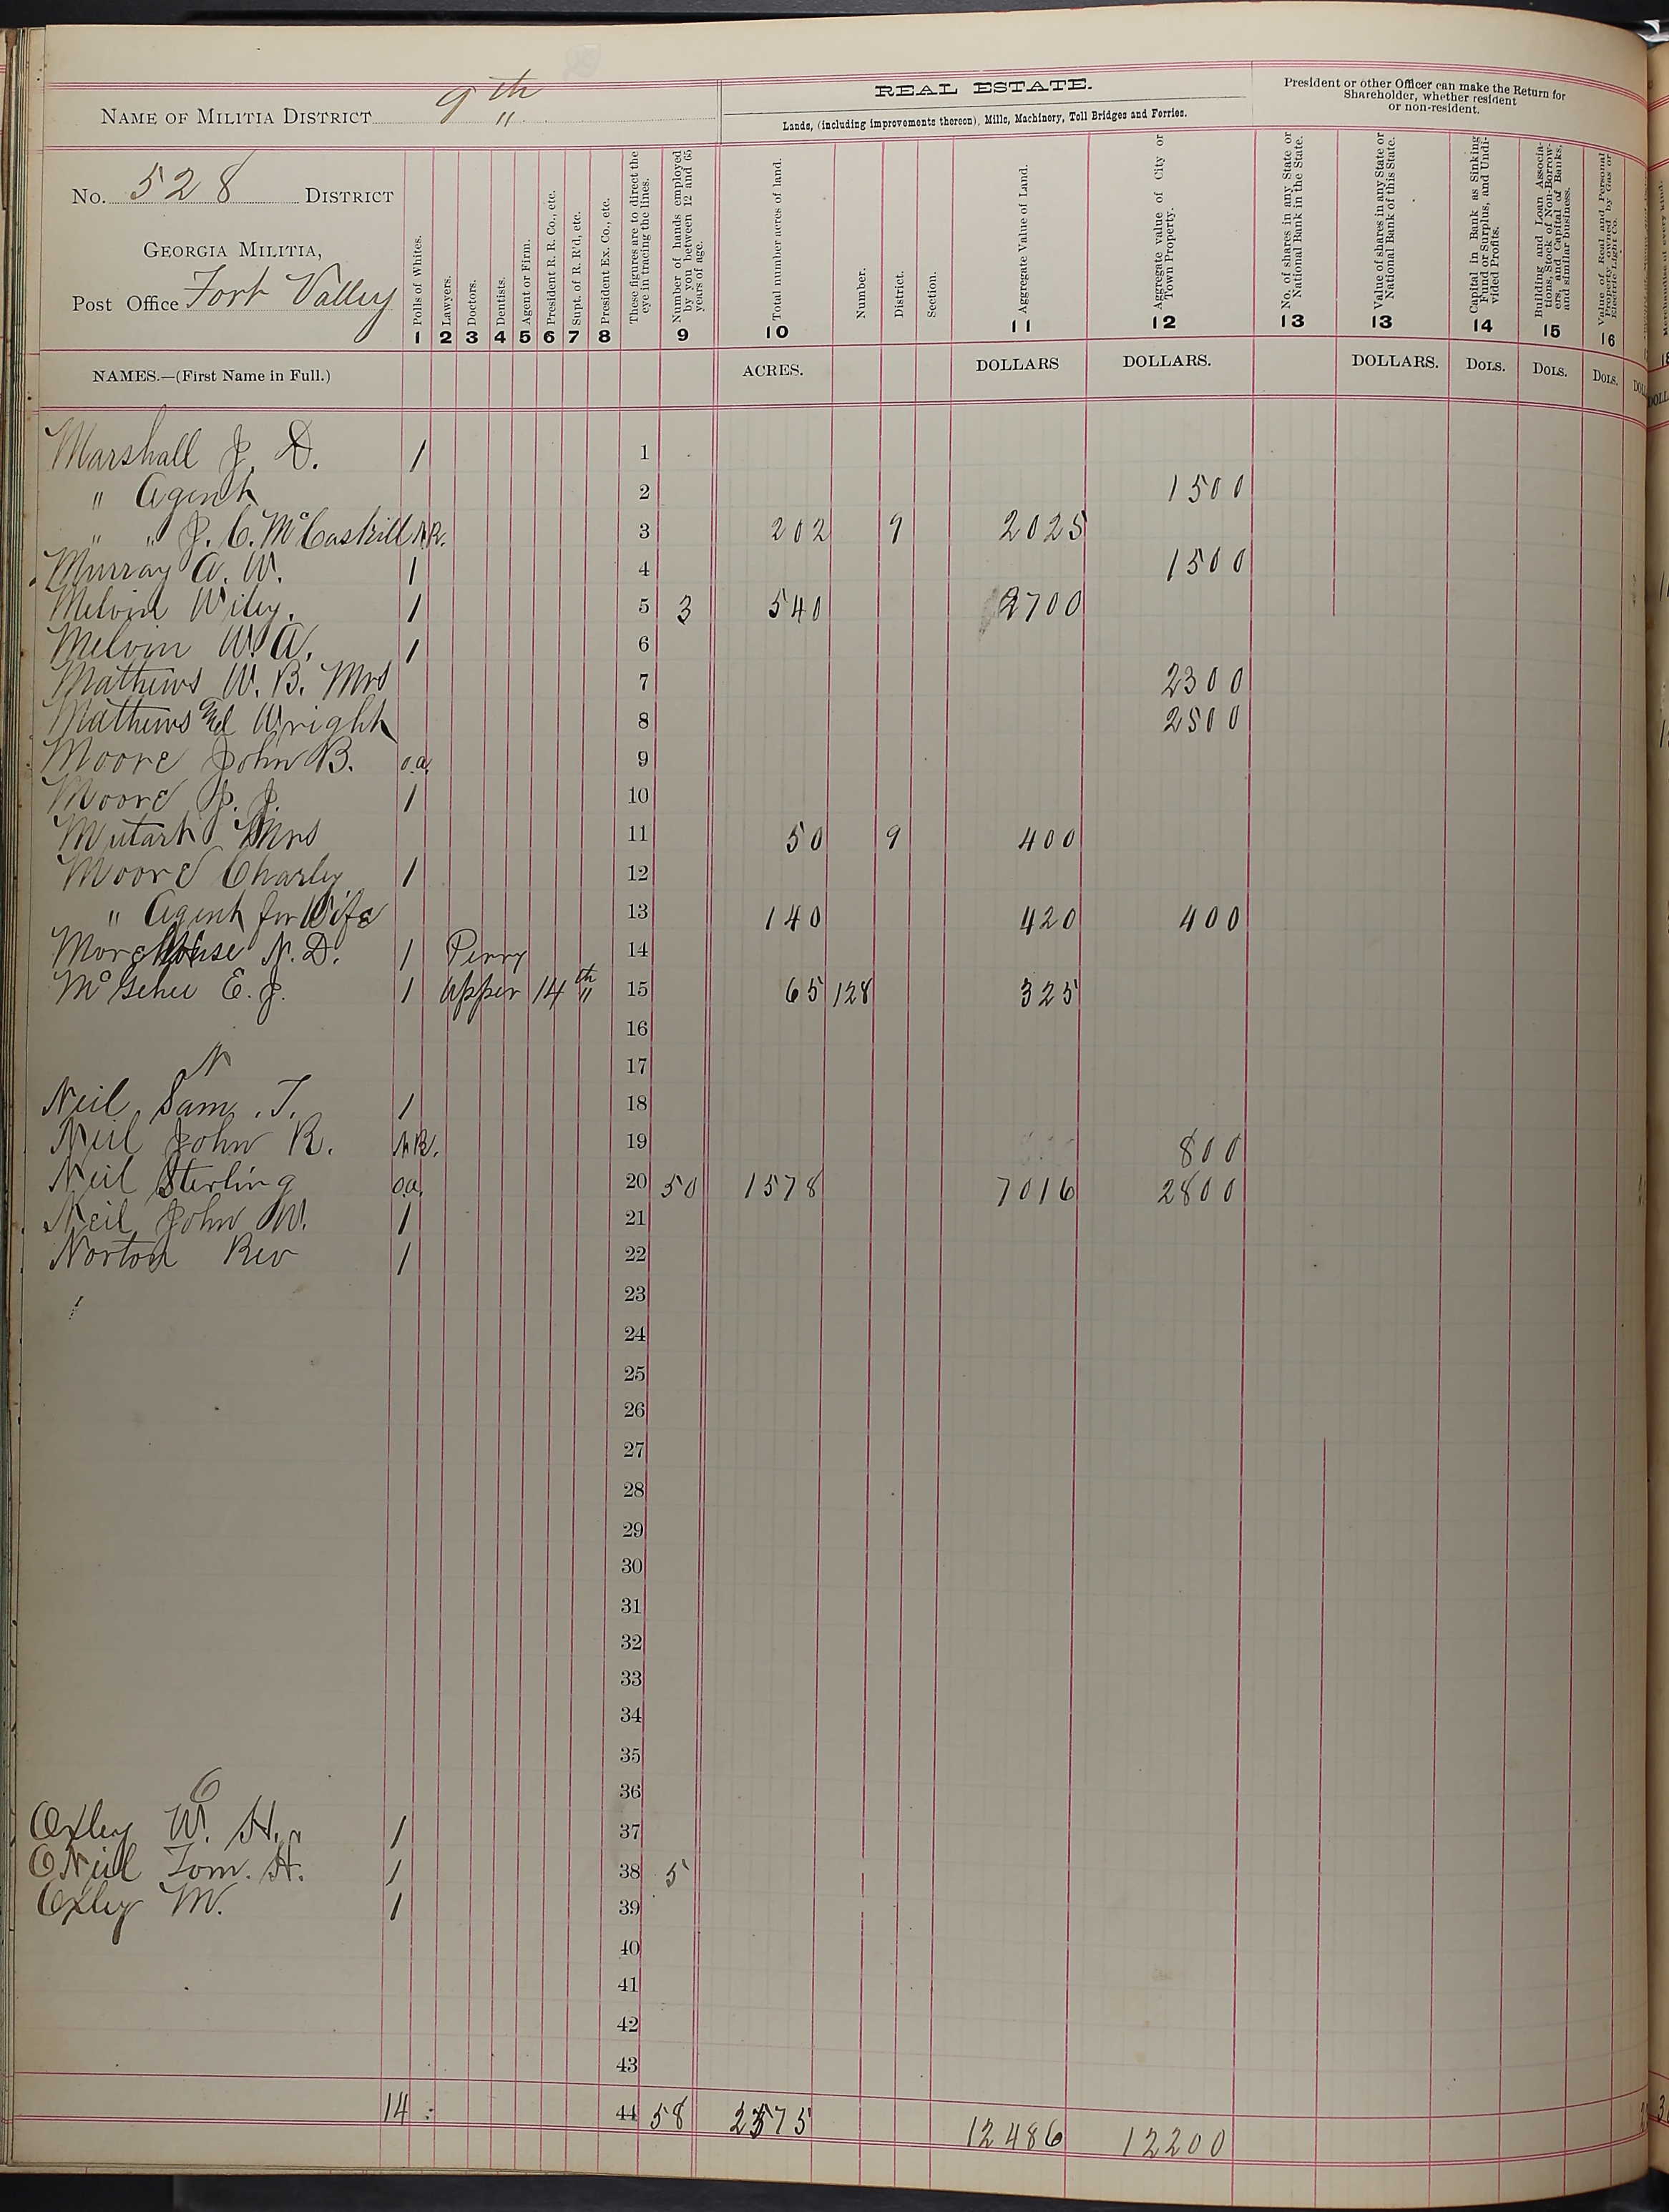 NAME OF MILITIA DISTRICT 9th "
No. 528 DISTRICT
GEORGIA MILITIA,
Post Office Fort Valley
REAL ESTATE.
Lands, (including improvements thereon), Mills, Machinery, Toll Bridges and Ferries.
President or other Officer can make the Return for
Shareholder, whether resident
or non-resident.
Polls of Whites. 1
Lawyers. 2
Doctors. 3
Dentists. 4
Agent or Firm. 5
President R. R. Co., etc. 6
Supt. of R. R'd, etc. 7
President Ex. Co., etc. 8
These figures are to direct the
eye in tracing the lines.
Number of hands employed
by you between 12 and 65
years of age.
9
Total number acres of land.
10
Number.
District.
Section.
Aggregate Value of Land.
11
Aggregate value of City or
Town Property.
12
No. of shares in any State or
National Bank in the State.
13
Value of shares in any State or
National Bank of this State.
13
Capital in Bank as Sinking
Fund or Surplus, and Undi-
vided Profits.
14
Building and Loan Associa-
tions, Stock of Non-Borrow-
ers, and Capital of Banks,
and similar business.
15
Value of Real and Personal
Property owned by Gas or
Electric Light Co.
16
NAMES.—(First Name in Full.) ACRES. DOLLARS DOLLARS. DOLLARS. DOLS. DOLS. DOLS.
Marshall J. D. 1 1
" Agent 2 1500
" " J. C. McCaskill N.R. 3 202 9 2025
Murray A. W. 1 4 1500
Melvin Wiley. 1 5 3 540 2700
Melvin W. A. 1 6
Mathews W. B. Mrs 7 2300
Mathews and Wright 8 2500
Moore John B. o.a. 9
Moore J. J. 1 10
Mrs 11 50 9 400
Moore Charley 1 12
" Agent for Wife 13 140 420 400
Morehouse N. D. 1 Perry 14
McGehee E. J. 1 Upper 14th " 15 65 128 325
16
N 17
Neil Sam. T. 1 18
Neil John R. N.R. 19 800
Neil Sterling o.a. 20 50 1578 7016 2800
Neil John W. 1 21
Norton Rev 1 22
23
24
25
26
27
28
29
30
31
32
33
34
35
O 36
Oxley W. H. 1 37
ONeil Tom. H. 1 38 5
Oxley M. 1 39
40
41
42
43
14 44 58 2575 12486 12200